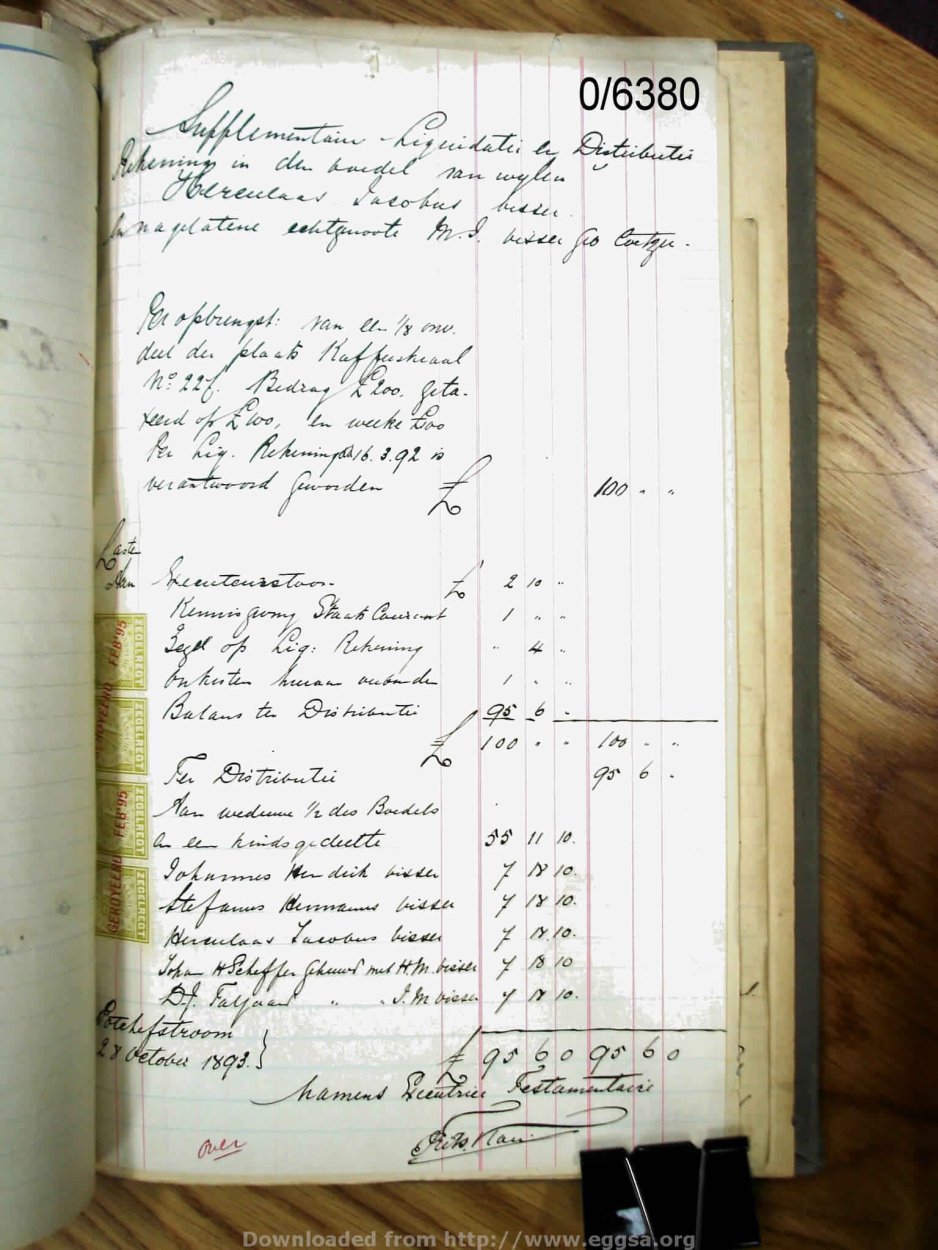 0/6380
Supplementaire Liquidatie en Distributie
Rekening in den boedel van wylen
Herculaas Jacobus Visser
en nagelatene echtgenoote M.J. Visser geb Coetzee.
Per opbrengst: van een 1/8 onv.
deel der plaats Kafferskraal
No 227. Bedrag £200. geta-
xeerd op £100, en welke £100
Per Liq. Rekening dd 16.3.92 is
verantwoord geworden £ 100 " "
Lasten
Aan Executeursloon £ 2 10 "
Kennisgeving Staats Courant 1 " "
Zegel op Liq: Rekening " 4 "
Onkosten hieraan verbonden 1 " "
Balans ter Distributie 95 6 "
£ 100 " " 100 " "
Per Distributie 95 6 "
Aan weduwe 1/2 des Boedels
en een kindsgedeelte 55 11 10.
Johannes Hendrik Visser 7 18 10.
Stefanus Hermanus Visser 7 18 10.
Herculaas Jacobus Visser 7 18 10.
Johan H Scheffer gehuwd met H.M. Visser 7 18 10
D.J. Taljaard " " J.M Visser 7 18 10.
Potchefstroom
28 October 1893.
£ 95 6 0 95 6 0
Namens Executrice Testamentaire
Over
ZEGELREGT
GEROYEERD FEB '95
ZEGELREGT
ZEGELREGT
GEROYEERD FEB '95
ZEGELREGT
Downloaded from http://www.eggsa.org